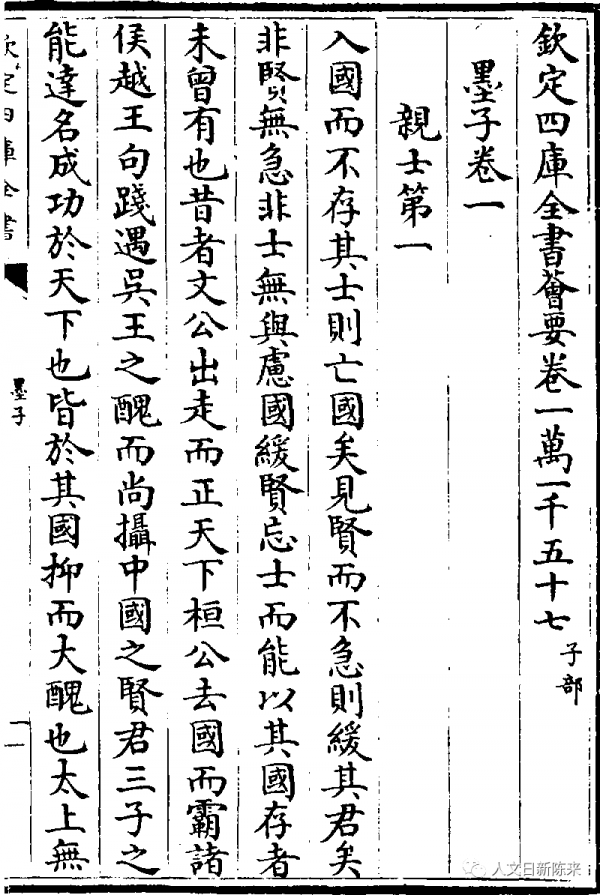 欽定四庫全書薈要卷一萬一千五十七 子部
墨子卷一
親士第一
入國而不存其士則亡國矣見賢而不急則緩其君矣
非賢無急非士無與慮國緩賢忘士而能以其國存者
未曾有也昔者文公出走而正天下桓公去國而霸諸
侯越王句踐遇吳王之醜而尚攝中國之賢君三子之
能達名成功於天下也皆於其國抑而大醜也太上無
欽定四庫全書
墨子
一
人文日新陈来